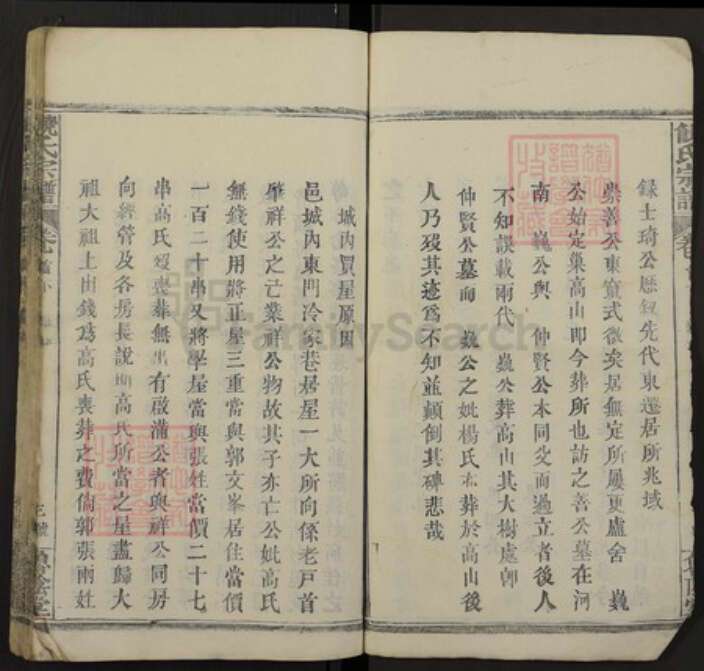 錄士琦公歷叙先代東遷居所兆域
崇善公東寬式微矣居無定所屢更盧舍 巍
公始定巢高山即今葬所也訪之善公墓在河
南 巍公與 仲賢公本同父而過立者後人
不知誤載兩代 巍公葬高山其大樹處即
仲賢公墓而 巍公之妣楊氏亦葬於高山後
人乃歿其迹為不知並顛倒其碑悲哉
城內買屋原因
邑城內東門冷家巷居屋一大所向係老戸首
肇祥公之己業祥公物故其子亦亡公妣高氏
無錢使用將正屋三重當與郭文峯居住當價
一百二十串又將學屋當與張姓當價二十七
串高氏歿喪葬無出有啟蒲公者與祥公同房
向經管及各房長說明高氏所當之屋盡歸大
祖大祖上出錢為高氏喪葬之費倘郭張兩姓
氏宗譜
FamilySearch